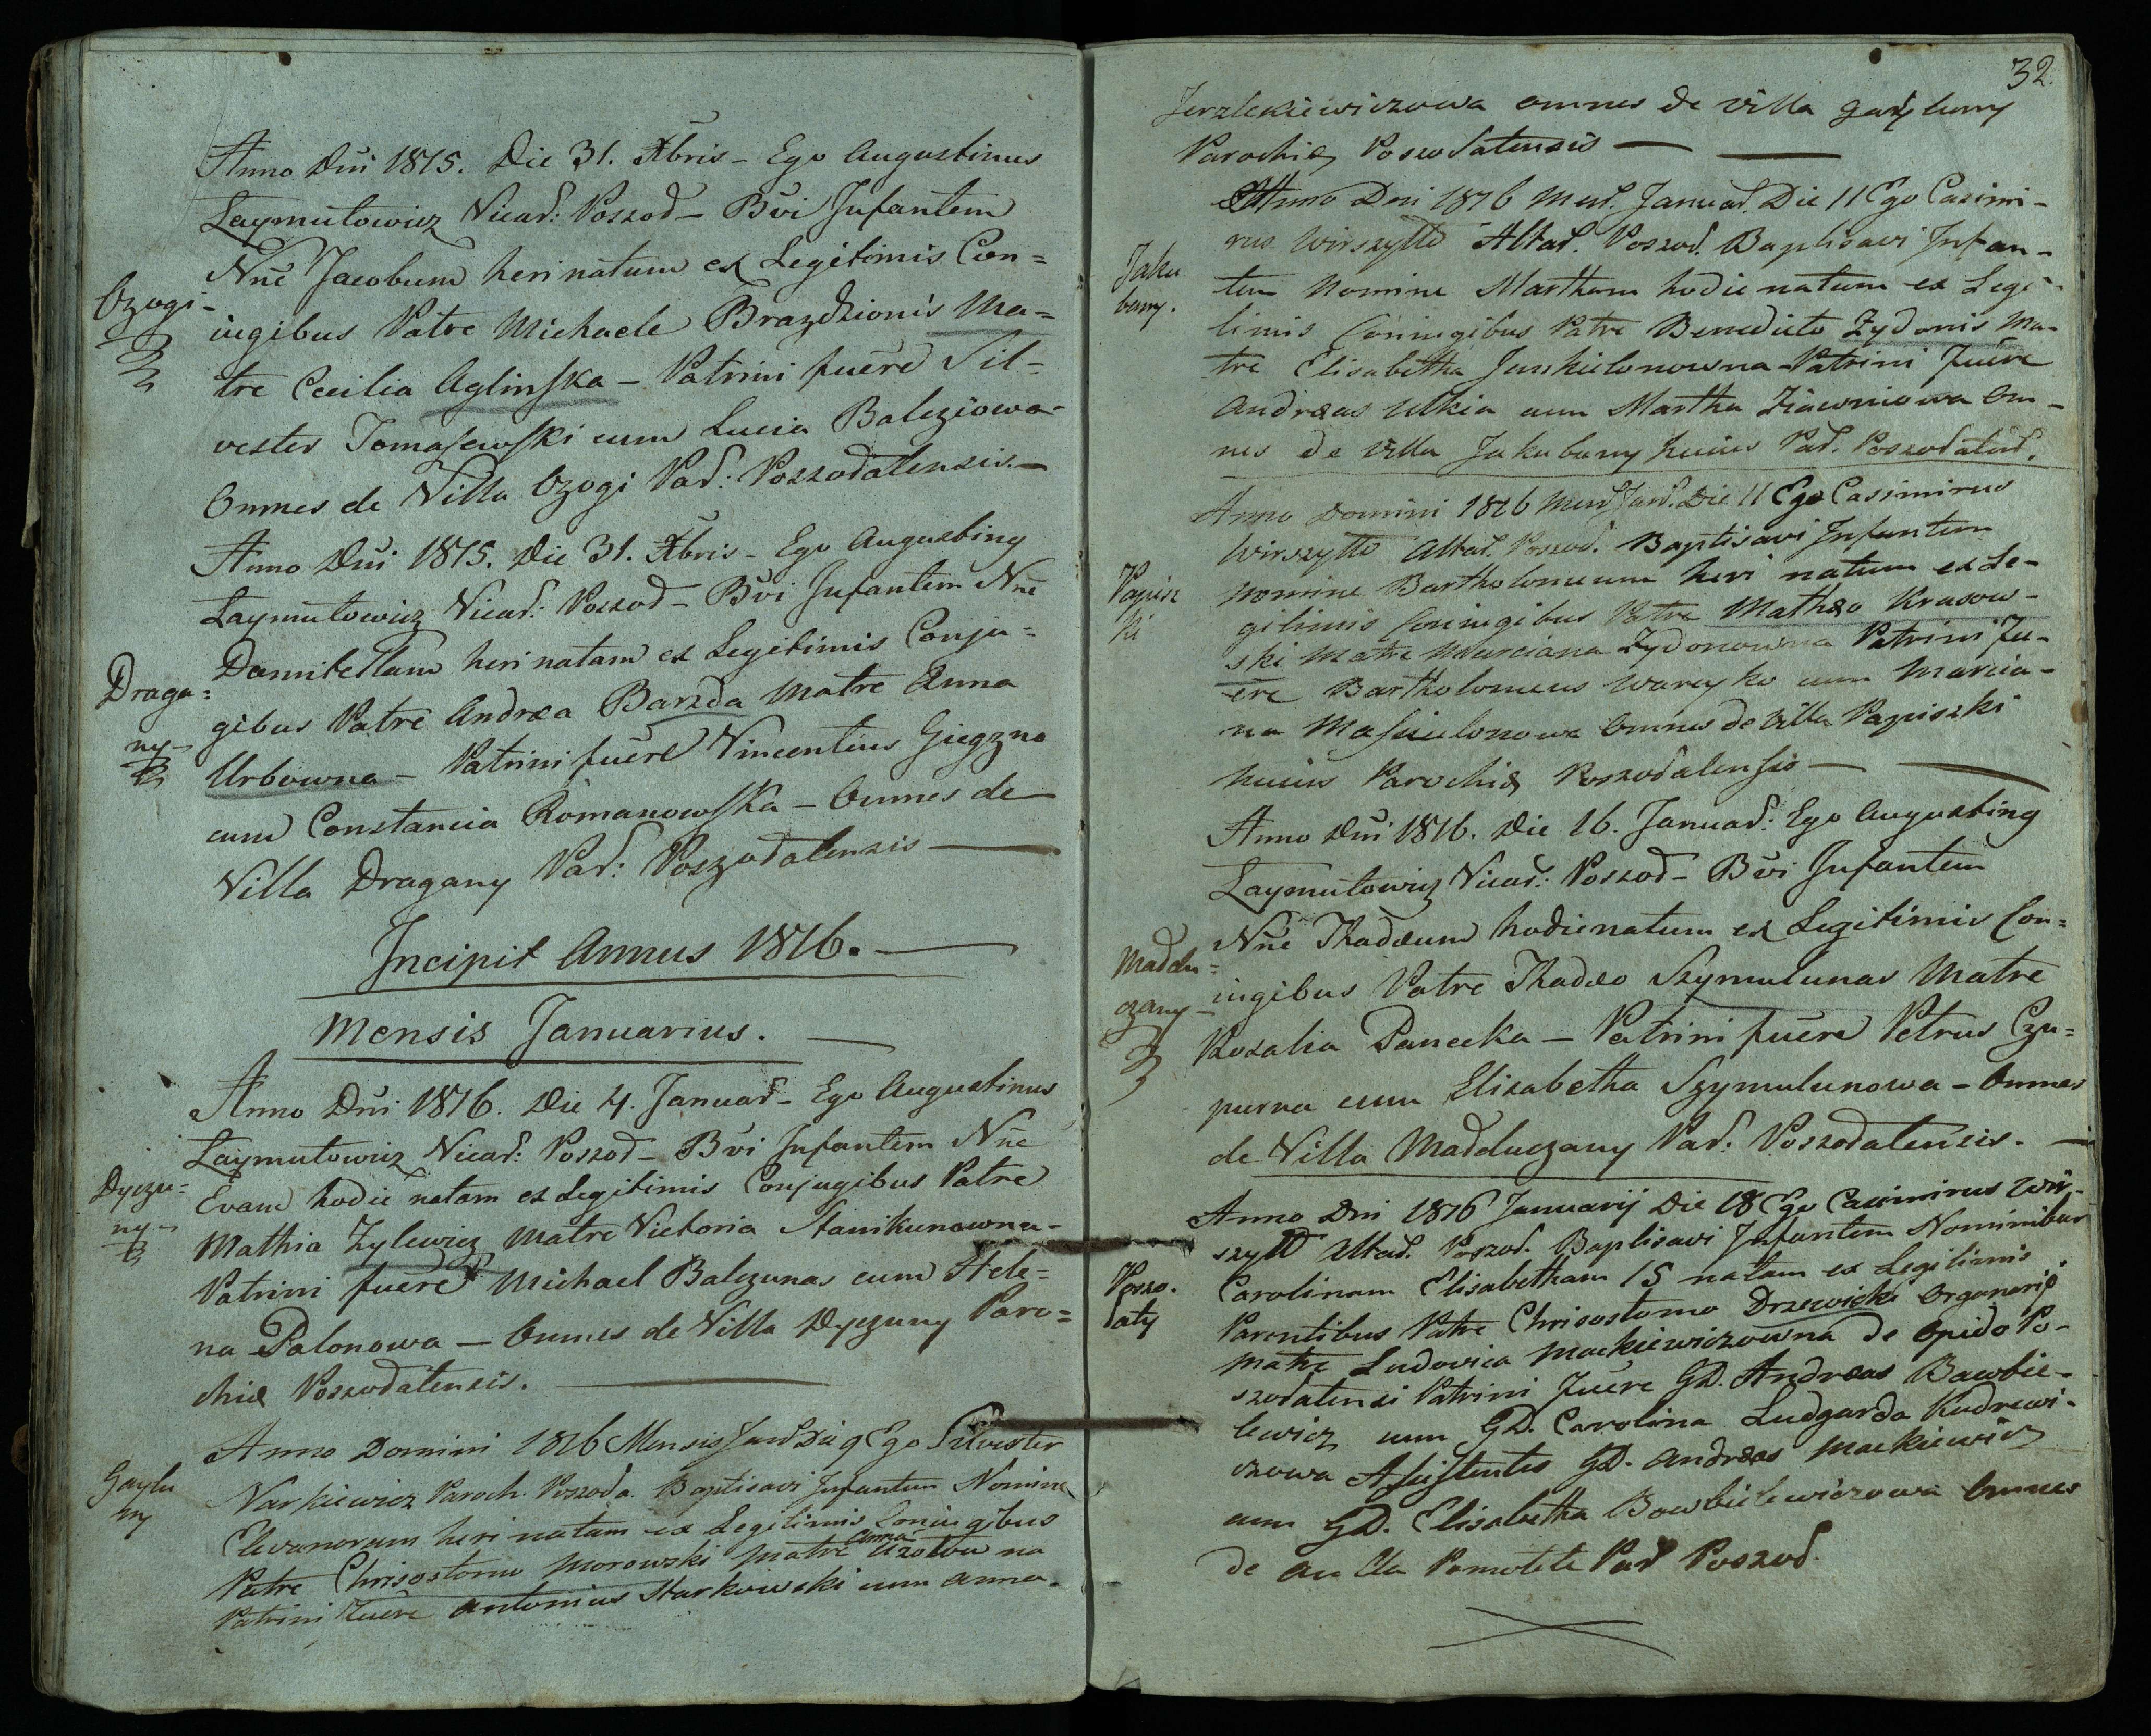 Anno Dni 1815. Die 31. Xbris - Ego Augustinus
Laymutowicz Vicar: Poszod - Bvi Infantem
Nne Jacobum heri natum ex Legitimis Con=
Ozogi-
iugibus Patre Michaele Brazdzionis Ma=
tre Cecilia Aglinska - Patrini fuere Sil=
vester Tomaszewski cum Lucia Balcziowa-
Omnes de Villa Ozogi Par: Poszodalensis.-
Anno Dni 1815. Die 31. Xbris - Ego Augusting
Laymutowicz Vicar: Poszod - Bvi Infantem Nne
Domitellam heri natam ex Legitimis Conju=
Draga=
ny-
gibus Patre Andræa Barzda Matre Anna
Urbowna - Patrini fuere Vincentius Giegzno
cum Constancia Romanowska - Omnes de
Villa Dragany Par: Poszodalensis -
Incipit Annus 1816. -
Mensis Januarius. -
Anno Dni 1816. Die 4. Januar - Ego Augustinus
Laymutowicz Vicar: Poszod - Bvi Infantem Nne
Dyczu=
ny-
Evam hodie natam ex Legitimis Conjugibus Patre
Mathia Zylewicz Matre Victoria Stanikunowna-
Patrini fuere Michael Balczunas cum Hele=
na Palonowa - Omnes de Villa Dyczuny Paro=
chiæ Poszodatensis.
Anno Domini 1816 Mensis Jan Die 9 Ego Silvester
Gaylu
ny
Narkiewicz Paroch. Poszoda. Baptisavi Infantem Nomine
Elevanoram heri natam ex Legitimis Coniugibus
Patre Chrisostomo Morowski Matre Anna
Patrini fuere Antonius Starkowski cum Anna
32.
Jerzlekiewiczowa omnes de villa
Parochiæ Poszodatensis -
Anno Dni 1816 Men. Januar. Die 11 Ego Casimi-
rus Wirszyłło Altar. Poszod. Baptisavi Infan-
Jaku
bany.
tem Nomine Martham hodie natam ex Legi-
timis Coniugibus Patre Benedicto Zydonis Ma-
tre Elisabetha Junkielonowna Patrini fuere
Andræas Ulkia cum Martha Ziawniowa Om-
nes de Villa Jakubany huius Par. Poszodalen.
Anno Domini 1816 Men Jan. Die 11 Ego Casimirus
Wirszyłło Altar. Poszod. Baptisavi Infantem
Papisz
ki
Nomine Bartholomeum heri natum ex Le-
gitimis Coniugibus Patre Mathæo Krasow-
ski Matre Marciana Zydonowna Patrini fu-
ere Bartholomeus Wareyko cum Marcia-
na Masiulonowa Omnes de Villa Papiszki
huius Parochiæ Poszodalensis -
Anno Dni 1816. Die 16. Januar: Ego Augusting
Laymutowicz Vicar: Poszod - Bvi Infantem
Nne Thadæum hodie natum ex Legitimis Con=
Maddu=
czany-
iugibus Patre Thadæo Szymulunas Matre
Rozalia Panecka - Patrini fuere Petrus Czu=
purna cum Elisabetha Szymulunowa - Omnes
de Villa Madduczany Par: Poszodalensis. -
Anno Dni 1816 Januarij Die 18 Ego Casimirus Wir-
szyłło Altar. Poszod. Baptisavi Infantem Nominibus
Poszo.
laty
Carolinam Elisabetham 15 natam ex Legitimis
Parentibus Patre Chrisostomo Drzewicki Organarij
Matre Ludovica Mackiewiczowna de Opido Po-
szodalensi Patrini fuere GD. Andræas Bawbie-
lewicz cum GD. Carolina Ludgarda Kudrewi-
czowa Assistentes GD. Andræas Mackiewicz
cum GD. Elisabetha Bowbielewiczowa Omnes
de Aula Pomotele Par Poszod.